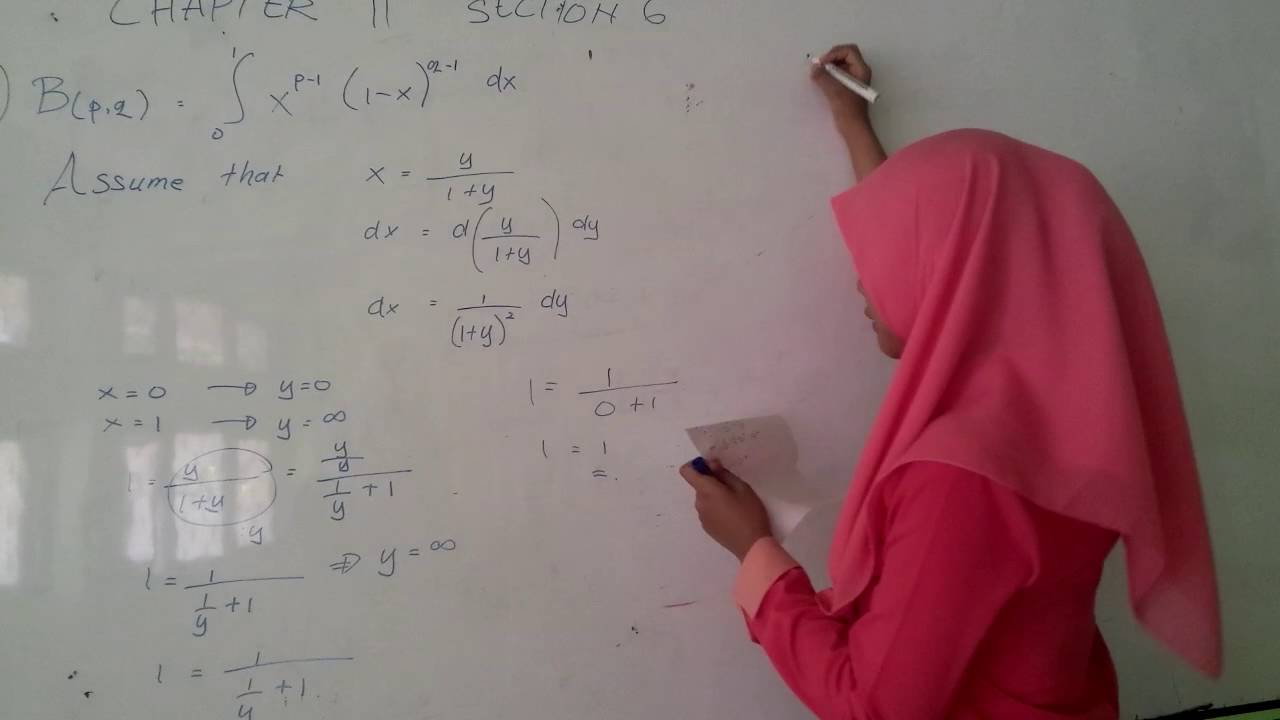 CHAPTER 11 SECTION 6
) B(p,q) = ∫₀¹ x^(p-1) (1-x)^(q-1) dx
Assume that x = y/(1+y)
dx = d(y/(1+y)) dy
dx = 1/(1+y)² dy
x = 0 → y = 0
x = 1 → y = ∞
1 = y/(1+y) = (y/y)/(1/y + 1)
y
1 = 1/(1/y + 1) ⇒ y = ∞
1 = 1/(1/y + 1)
1 = 1/(0 + 1)
1 = 1